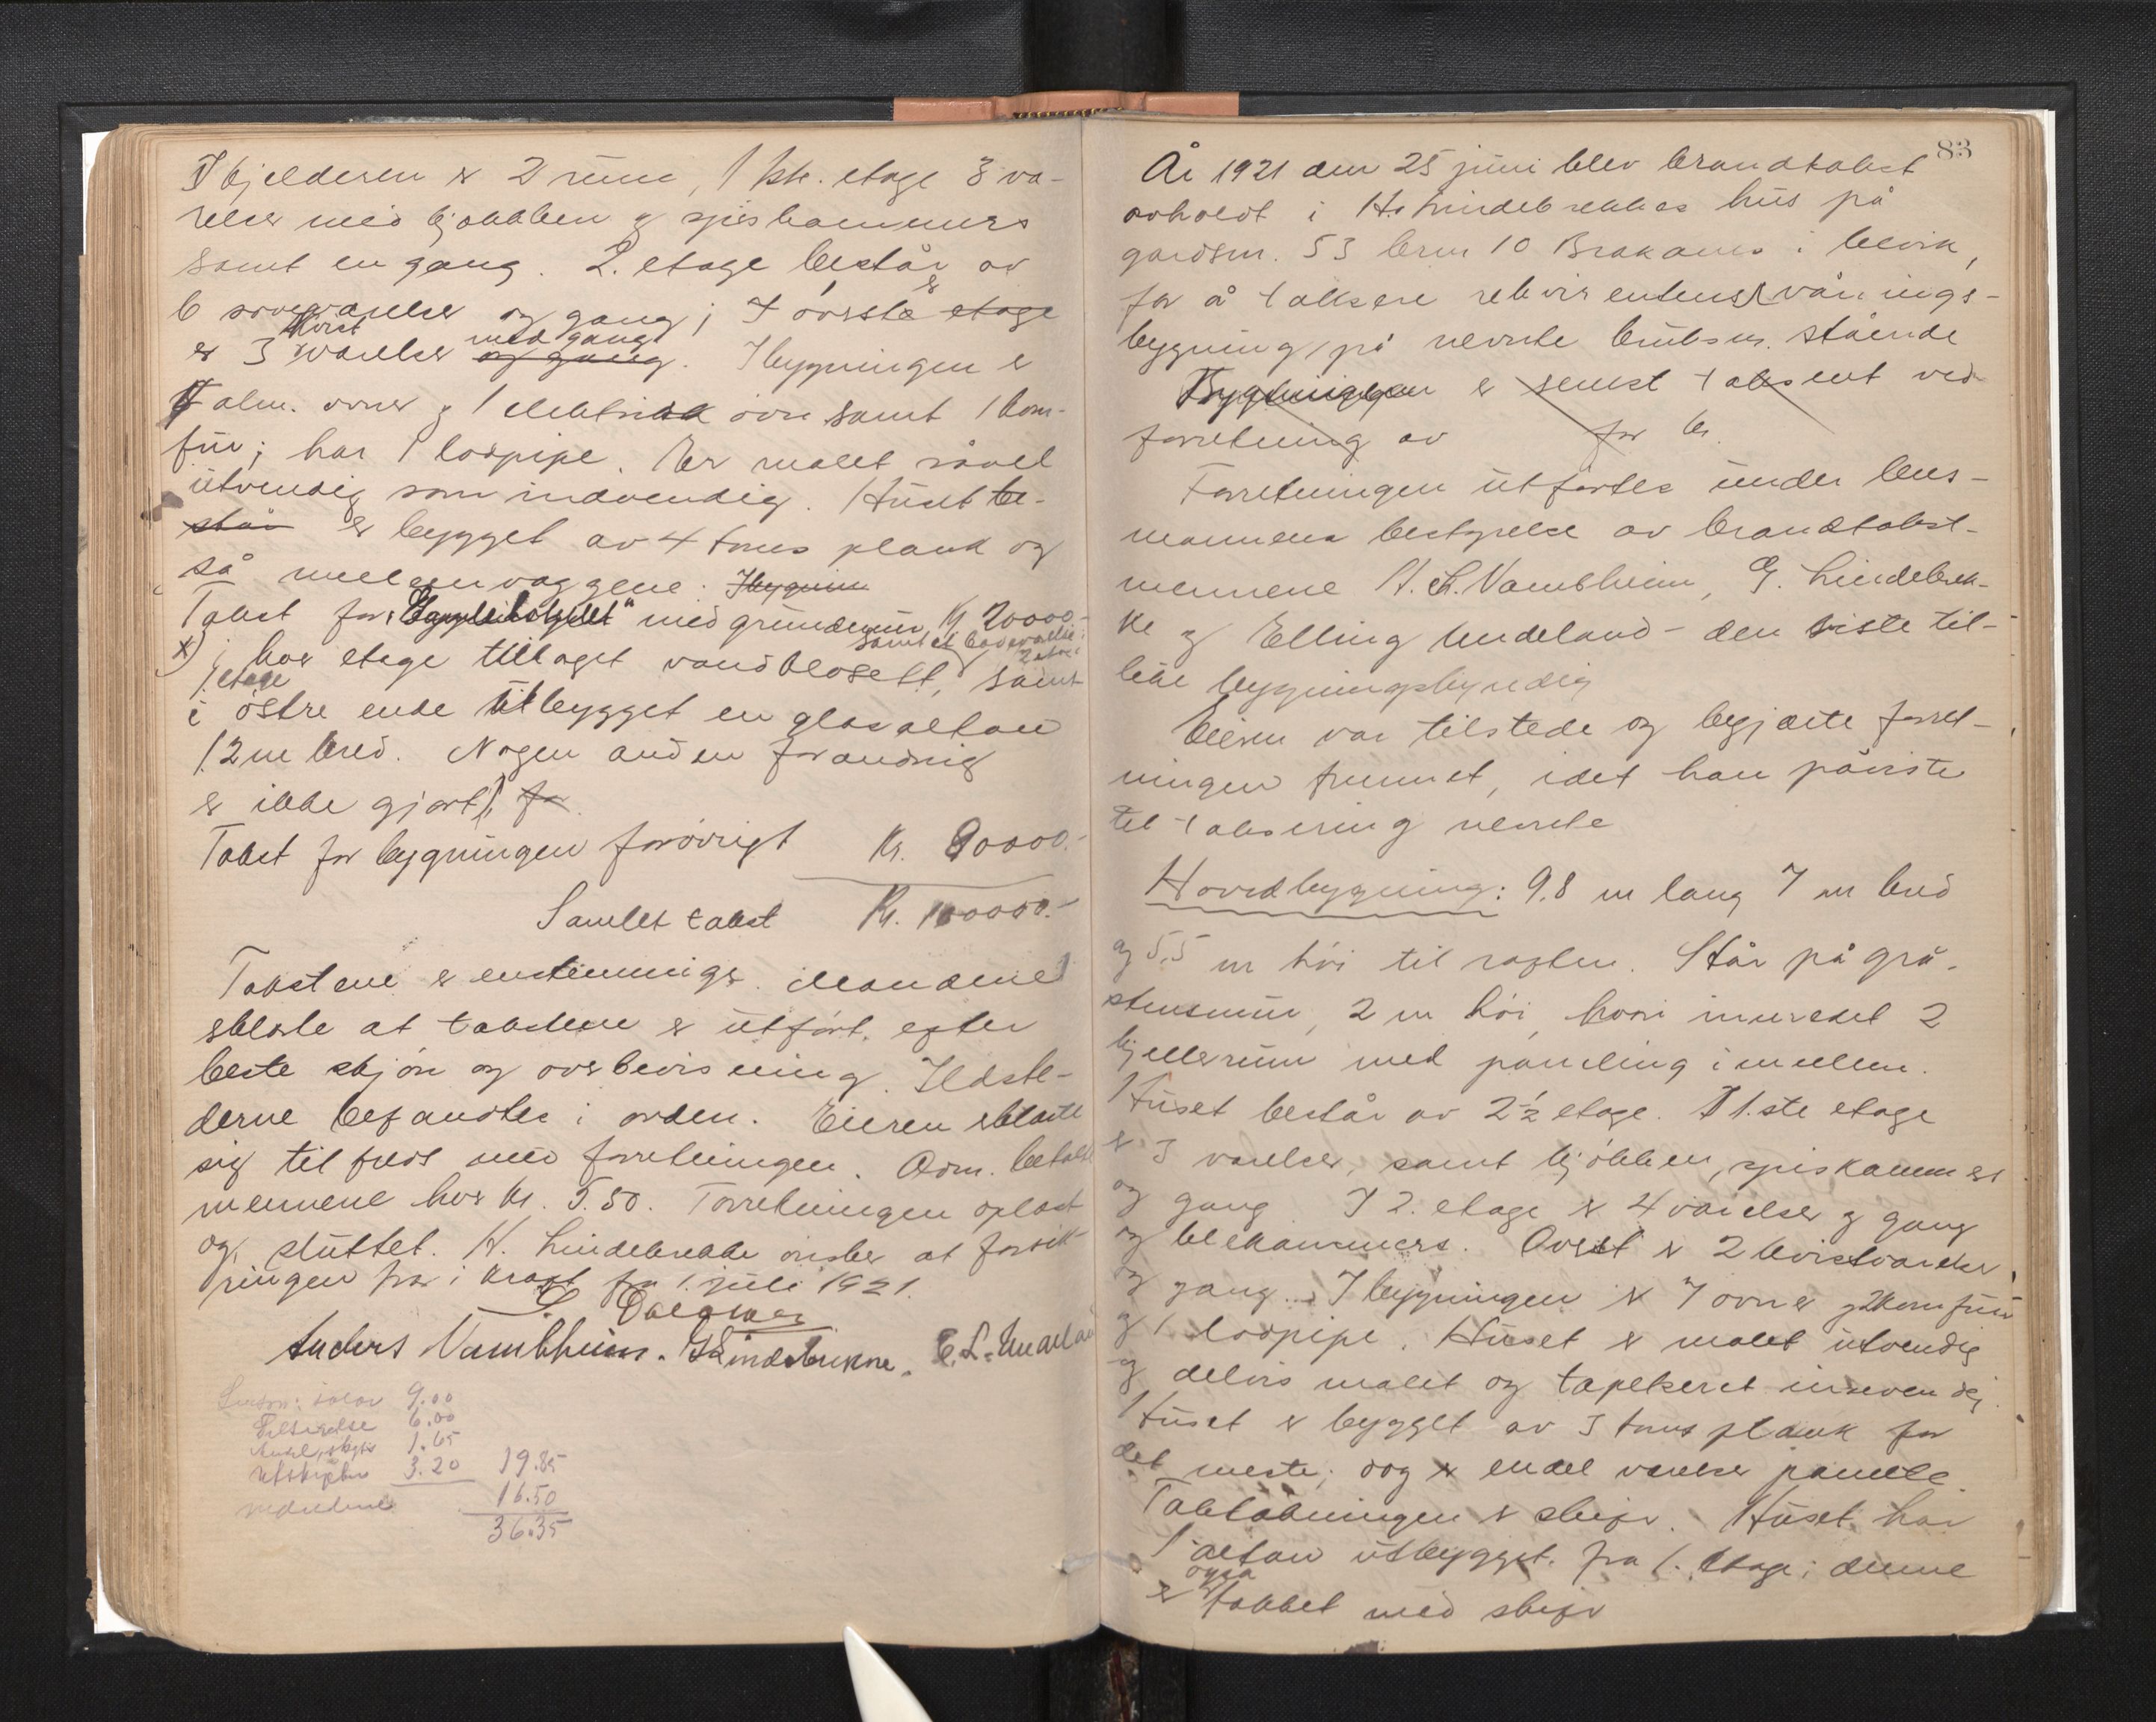 I kjelderen er 2 rum, 1ste etage 3 væ-
relser med kjøkken og spiskammers
samt en gang. 2. etage består av
6 soveværelser og gang; I øverste etage
er 3 kvistværelser og gang med gang. I bygningen er
7 alm. ovner og 1 elektrisk ovn samt 1 kom-
fur; har 1 lodpipe. Er malet såvel
utvendig som indvendig. Huset be-
står er bygget av 4 toms plank og
så mellemvæggene. I bygnin
Takst for med grundmur Kr 20000.-
x) i hver etage tillaget vandklosett, samt et badeværelse i 2 etage samt
1. etage
i østre ende tilbygget en glasaltan
1.2 m bred. Nogen anden forandring
er ikke gjort, for
Takst for bygningen forøvrigt Kr. 80000.-
Samlet takst Kr. 100000.-
Takstene er enstemmige. Mændene
erklærte at taksten er utført efter
beste skjøn og overbevisning. Ildste-
derne befandtes i orden. Eieren erklærte
sig tilfreds med forretningen. Adm. betalte
mennene hver kr. 5.50. Forretningen oplæst
og sluttet. H. Lindebrekke ønsker at forsik-
ringen trær i kraft fra 1. juli 1921.
Anders Nambheim. G Lindebrekke. E. L. Undeland
9.00
Tilsigelse 6.00
1.65
Utskrifter 3.20 19.85
16.50
36.35
83
År 1921 den 25 juni blev brandtakst
avholdt i H. Lindebrekkes hus på
gardsnr. 53 brnr 10 Brakanes i Ulvik,
for å taksere rekvirentens vånings-
bygning, på nevnte bruksnr. stående
Bygningen er senest taksert ved
forretning av for kr.
Forretningen utførtes under lens-
mannens bestyrelse av brandtakst-
mennene A. L. Nambheim, G. Lindebrek-
ke og Elling Undeland - den siste til-
like bygningskyndig
Eieren var tilstede og begjærte forret-
ningen fremmet, idet han påviste
til taksering nevnte
Hovedbygning: 9,8 m lang 7 m bred
og 5,5 m høi til raften. Står på grå-
stensmur, 2 m høi, hvori innredet 2
kjellerrum med paneling imellem.
Huset består av 2 ½ etage. I 1.ste etage
er 3 værelser, samt kjøkken, spiskammer
og gang. I 2. etage er 4 værelser og gang
og klekammers. Øverst er 2 kvistværelser
og gang. I bygningen er 7 ovner og 2 komfur
og 1 lodpipe. Huset er malet utvendig
og delvis malet og tapetseret indvendig.
Huset er bygget av 3 toms plank for
det meste; dog er endel værelser panelte.
Taktækningen er skifer. Huset har
1 altan utbygget fra 1. etage; denne
er også tækket med skifer